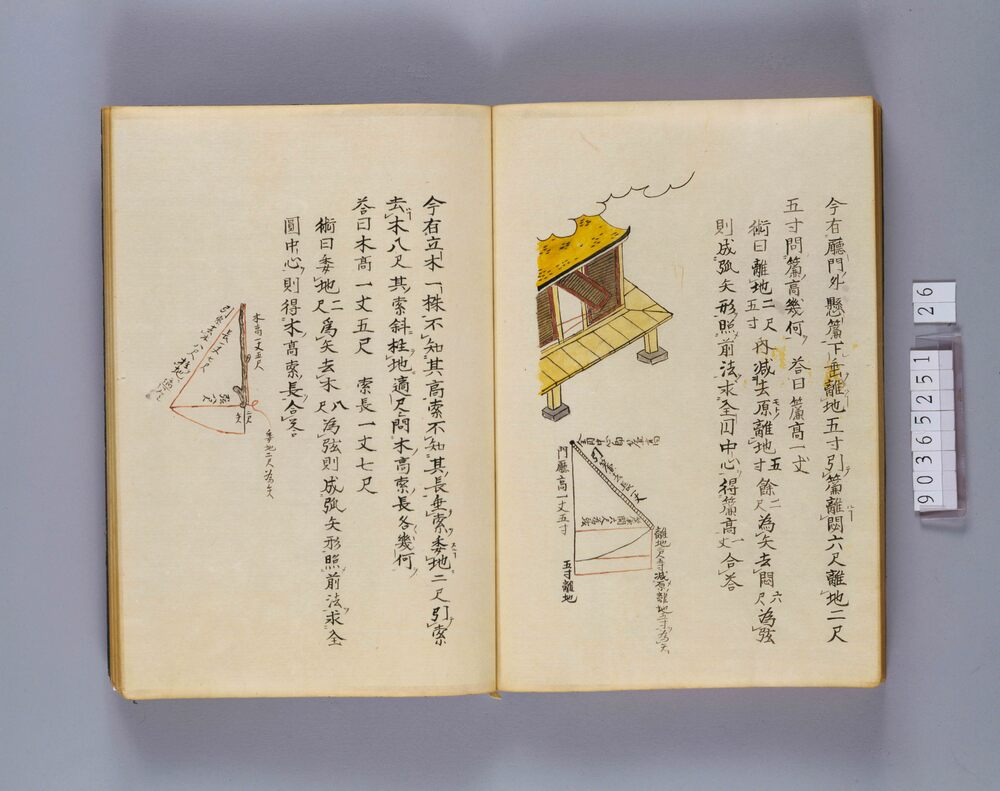 今有廳門外懸簾下垂離地五寸引簾離閾六尺離地二尺
五寸問簾高幾何 荅曰簾高一丈
術曰離地二尺五寸內減去原離地五寸餘二尺為矢去閾六尺為弦
則成弧矢形照前法求全円中心得簾高一丈合荅
門廳高一丈五寸
五寸離地
今有立木一株不知其高索不知其長垂索委地二尺引索
去木八尺其索斜拄地適尺問木高索長各幾何
荅曰木高一丈五尺 索長一丈七尺
術曰委地二尺爲矢去木八尺為弦則成弧矢形照前法求全
圓中心則得木高索長合荅
木高一丈五尺
委地二尺為矢
90365251
26